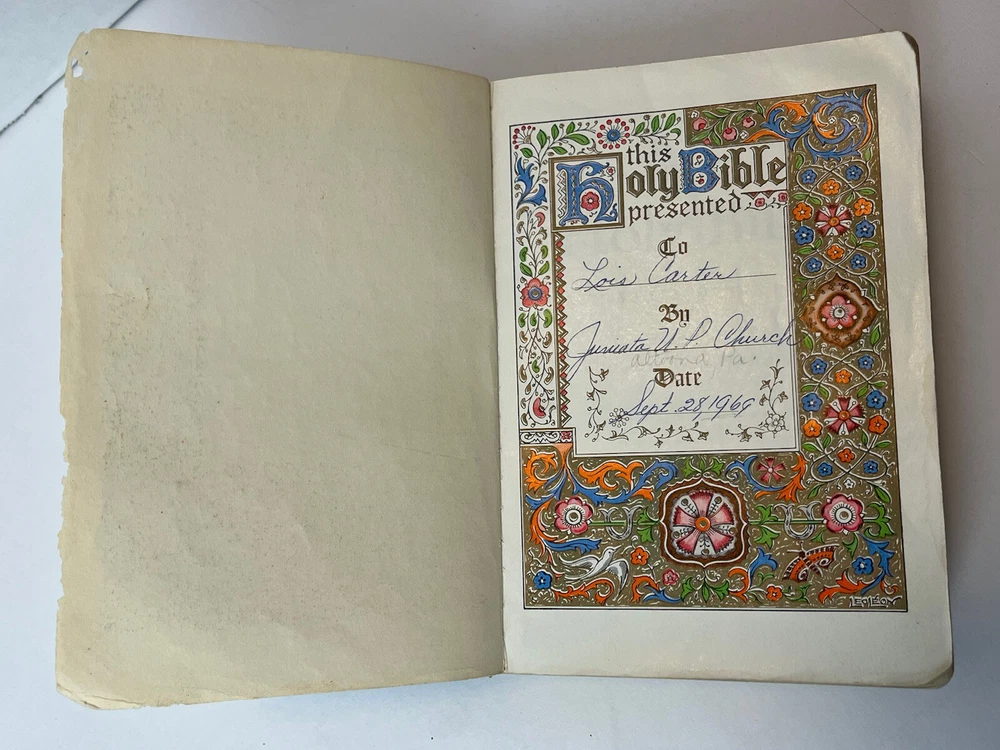 this
Holy Bible
presented
To
Lois Carter
By
Juniata U. P. Church
altoona, Pa.
Date
Sept. 28, 1969